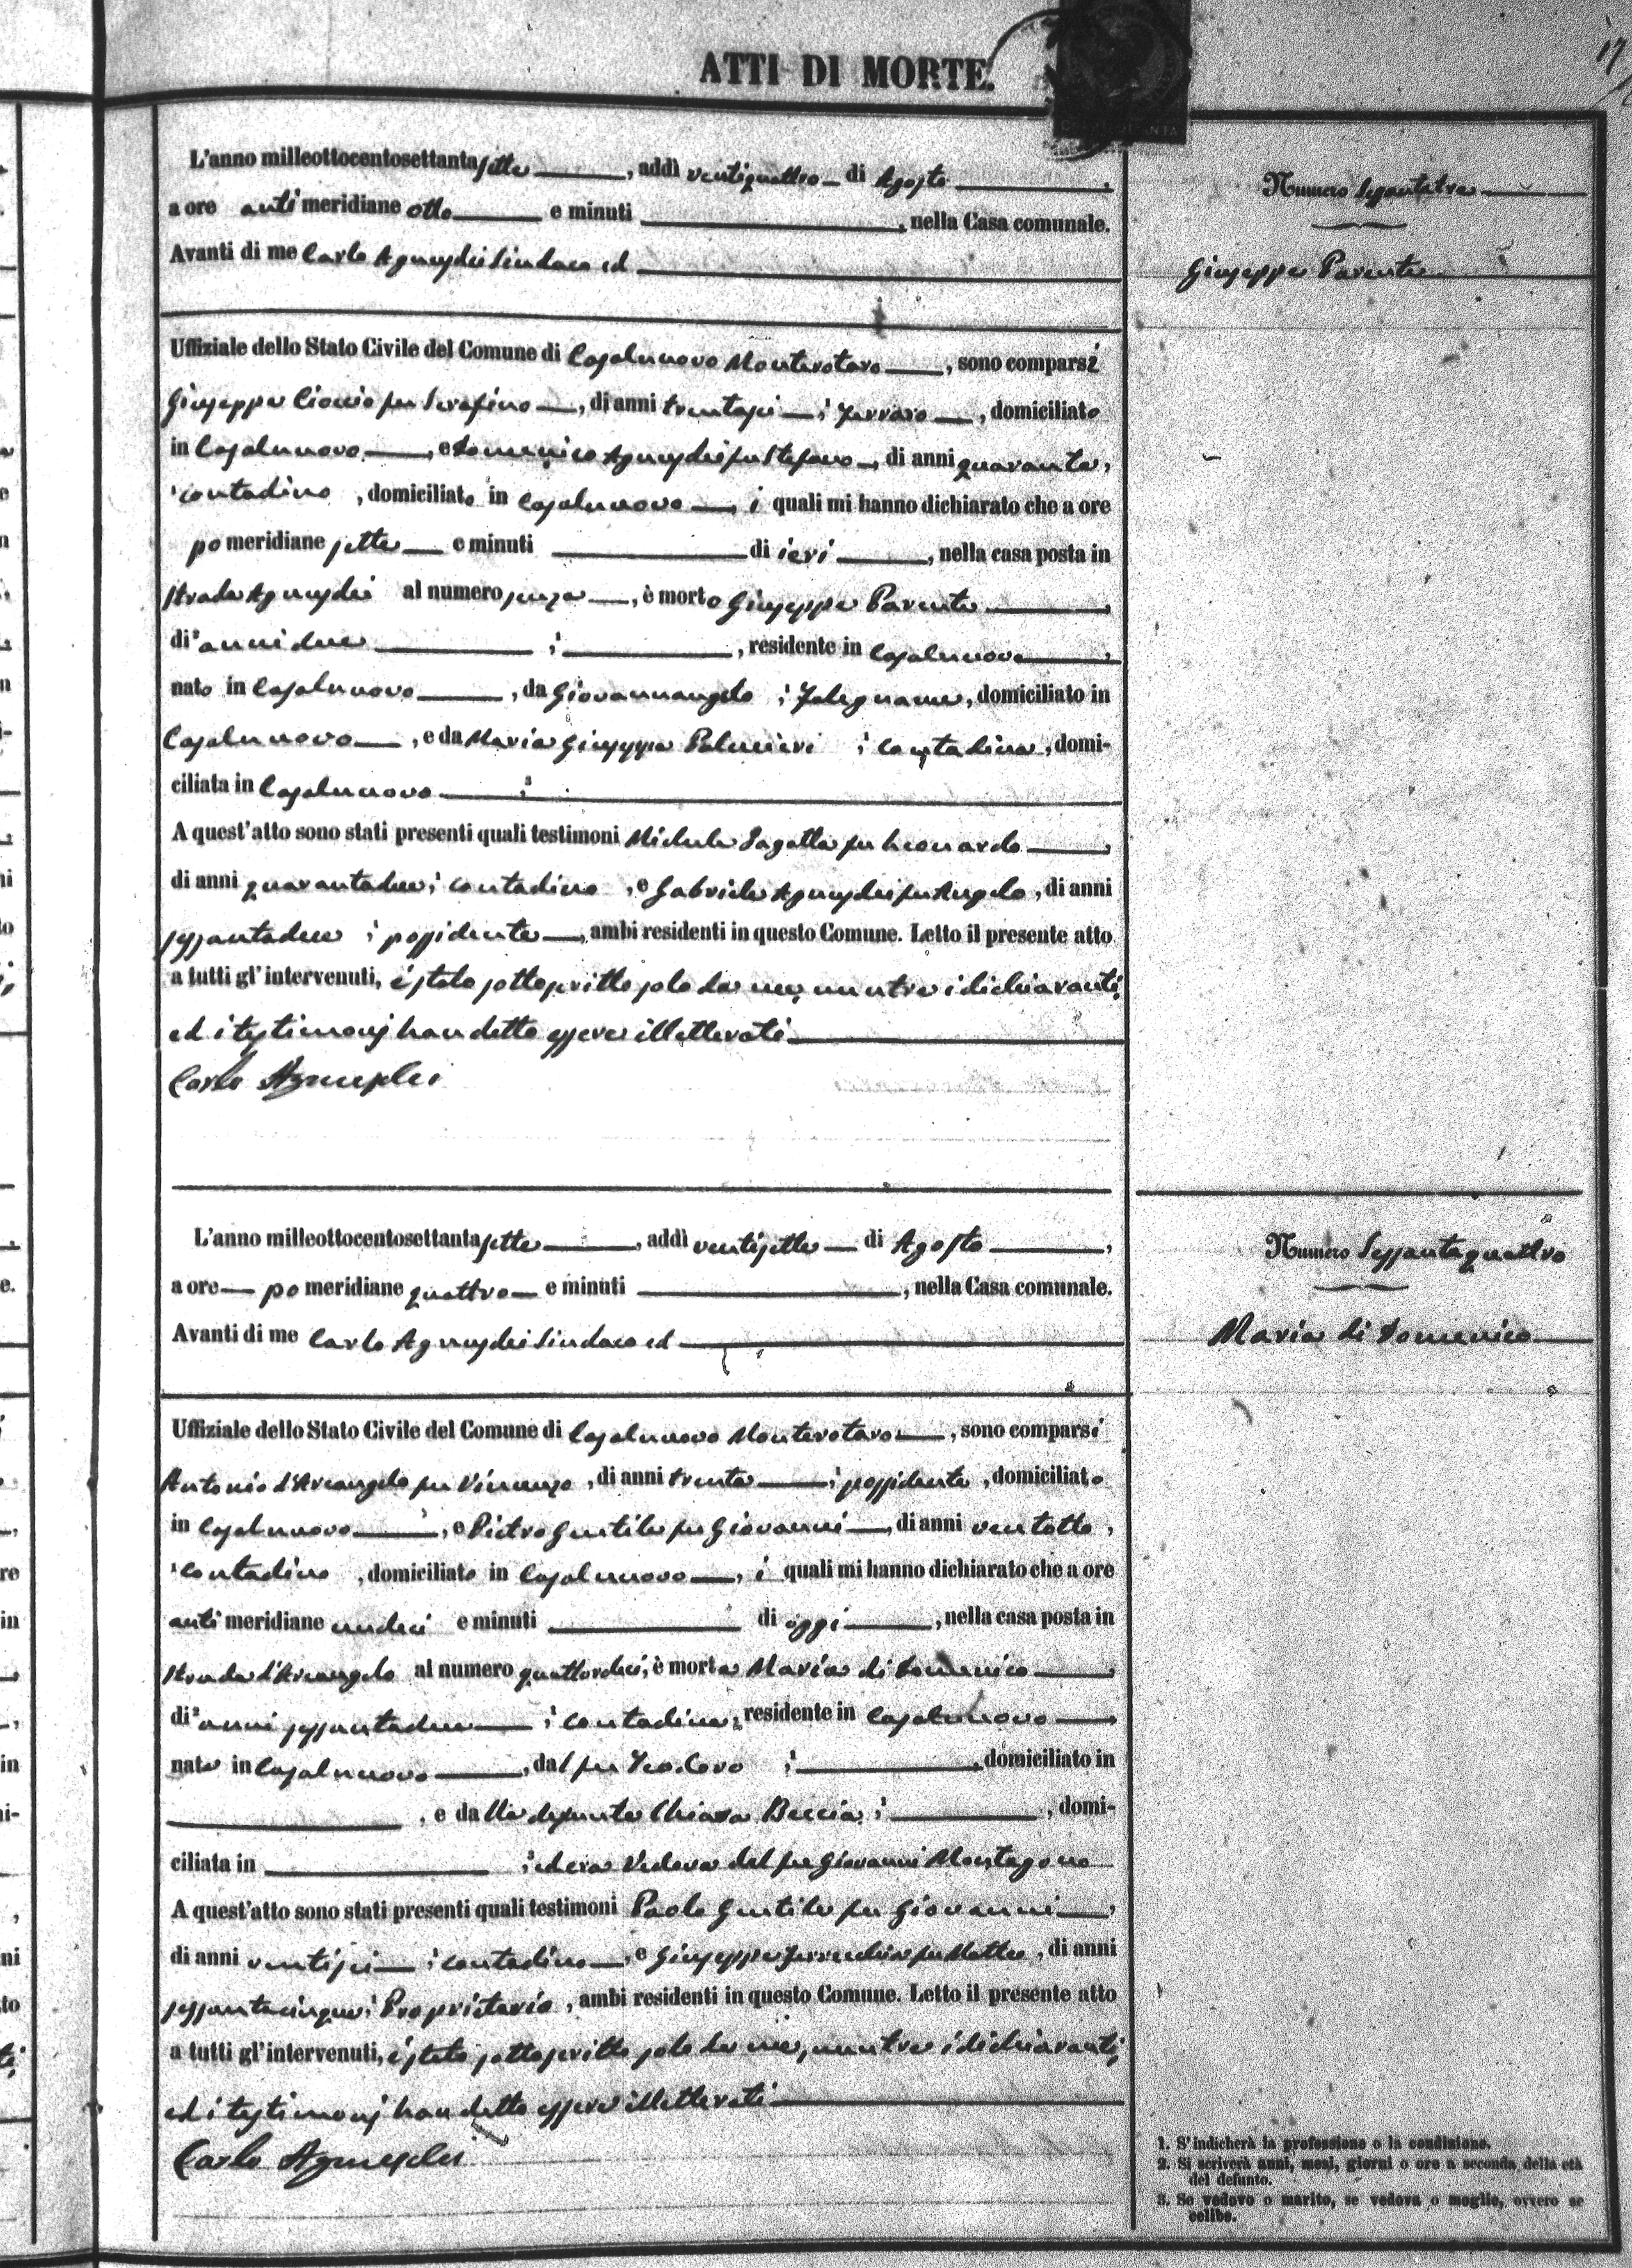 ATTI DI MORTE.
17
L'anno milleottocentosettantasette, addì ventiquattro di Agosto,
a ore anti meridiane otto e minuti, nella Casa comunale.
Avanti di me Carlo Agnusdei Sindaco ed
Uffiziale dello Stato Civile del Comune di Casalnuovo Monterotaro, sono comparsi
Giuseppe Cioccio fu Serafino, di anni trentasei, ferraro, domiciliato
in Casalnuovo, e Domenico Agnusdei fu Stefano, di anni quaranta,
contadino, domiciliato in Casalnuovo, i quali mi hanno dichiarato che a ore
po meridiane sette e minuti di ieri, nella casa posta in
strada Agnusdei al numero senza, è morto Giuseppe Parente
di anni due, residente in Casalnuovo,
nato in Casalnuovo, da Giovannangelo, falegname, domiciliato in
Casalnuovo, e da Maria Giuseppa Palmieri, contadina, domi-
ciliata in Casalnuovo
A quest'atto sono stati presenti quali testimoni Michele Sagella fu Leonardo,
di anni quarantadue, contadino, e Gabriele Agnusdei fu Angelo, di anni
sessantadue, possidente, ambi residenti in questo Comune. Letto il presente atto
a tutti gl'intervenuti, è stato sottoscritto solo da me, mentre i dichiaranti,
ed i testimonj han detto essere illetterati
Carlo Agnusdei
Numero Sessantatre
Giuseppe Parente
L'anno milleottocentosettantasette, addì ventisette di Agosto,
a ore po meridiane quattro e minuti, nella Casa comunale.
Avanti di me Carlo Agnusdei Sindaco ed
Uffiziale dello Stato Civile del Comune di Casalnuovo Monterotaro, sono comparsi
Antonio d'Arcangelo fu Vincenzo, di anni trenta, possidente, domiciliato
in Casalnuovo, e Pietro Gentile fu Giovanni, di anni ventotto,
contadino, domiciliato in Casalnuovo, i quali mi hanno dichiarato che a ore
anti meridiane undici e minuti di oggi, nella casa posta in
strada d'Arcangelo al numero quattordici, è morta Maria di Domenico
di anni sessantadue, contadina, residente in Casalnuovo,
nata in Casalnuovo, dal fu Teodoro, domiciliato in
, e dalla defunta Chiara Beccia, domi-
ciliata in ed era Vedova del fu Giovanni Montagano
A quest'atto sono stati presenti quali testimoni Paolo Gentile fu Giovanni,
di anni ventisei, contadino, e Giuseppe fu Matteo, di anni
sessantacinque, Proprietario, ambi residenti in questo Comune. Letto il presente atto
a tutti gl'intervenuti, è stato sottoscritto solo da me, mentre i dichiaranti,
ed i testimonj han detto essere illetterati
Carlo Agnusdei
Numero Sessantaquattro
Maria di Domenico
1. S'indicherà la professione o la condizione.
2. Si scriverà anni, mesi, giorni o ore a seconda della età
del defunto.
3. Se vedovo o marito, se vedova o moglie, ovvero se
celibe.